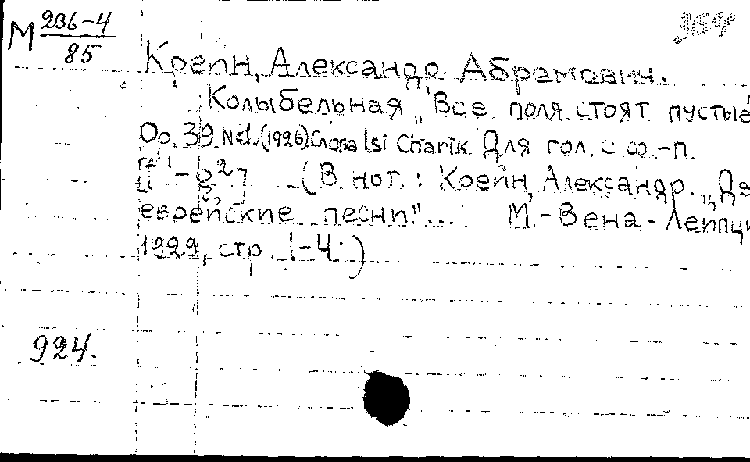 М 236-4
85
Крейн, Александр Абрамович.
Колыбельная „Все поля стоят пустые
Ор. 39 №1. (1926) Слова Isi Charik Для гол. с ф.-п.
[f¹-g²] (В нот.: Крейн, Александр. „Дв
еврейские песни"... М.-Вена-Лейпци
1929, стр. 1-4.)
924.